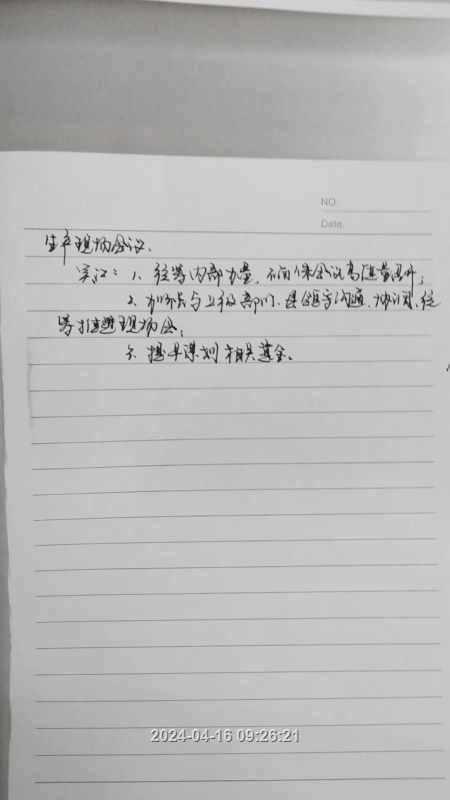 NO.
Date.
生产现场会议.
1. 统筹内部力量, 会议高质量召开;
2. 加强与上级部门、县领导沟通、协调, 统
筹推进现场会;
3. 提早谋划相关基金.
2024-04-16 09:26:21